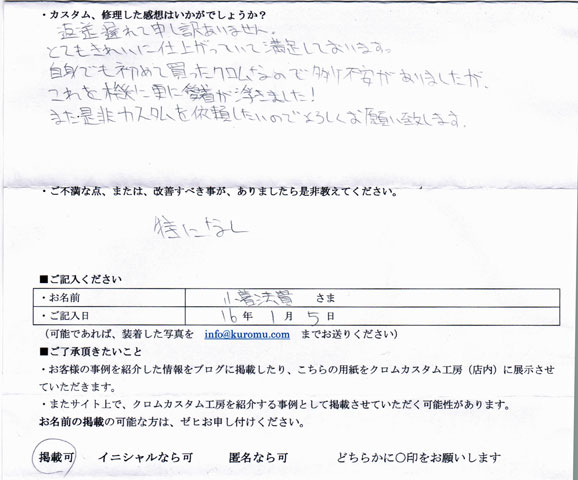 ・カスタム、修理した感想はいかがでしょうか？
返並遅れて申し訳ありません。
とてもきれいに仕上がっていて満足しております。
自身でも初めて買ったクロムなので多少不安がありましたが、
これを機に更に愛着が浮きました！
また是非カスタムを依頼したいのでよろしくお願い致します。
・ご不満な点、または、改善すべき事が、ありましたら是非教えてください。
特になし
■ご記入ください
・お名前 さま
・ご記入日 16 年 1 月 5 日
（可能であれば、装着した写真を info@kuromu.com までお送りください）
■ご了承頂きたいこと
・お客様の事例を紹介した情報をブログに掲載したり、こちらの用紙をクロムカスタム工房（店内）に展示させ
ていただきます。
・またサイト上で、クロムカスタム工房を紹介する事例として掲載させていただく可能性があります。
お名前の掲載の可能な方は、ゼヒお申し付けください。
掲載可 イニシャルなら可 匿名なら可 どちらかに〇印をお願いします